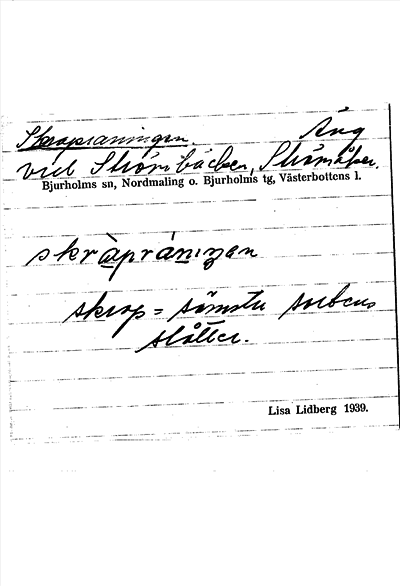 Skrapraningen. Äng
vid Strömbäcken, Strömåker.
Bjurholms sn, Nordmaling o. Bjurholms tg, Västerbottens l.
skràpránıŋen
skrap = sämsta sortens
slåtter.
Lisa Lidberg 1939.